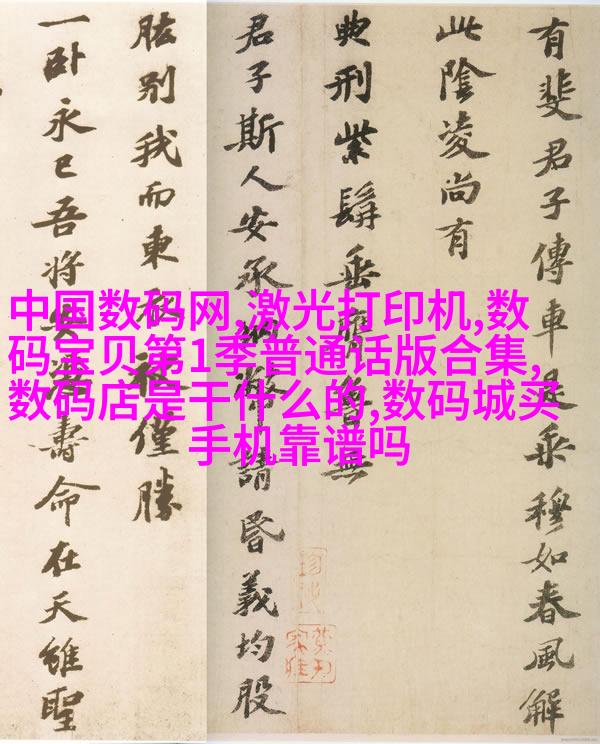 有斐君子傳車是乘穆如春風解
此陰凌尚有
典刑紫髯垂膺魯無
君子斯人安承納幣請昏義均股
肱別我而東衣袂僅勝
一臥永已吾將安憑壽命在天雖聖
中国数码网,激光打印机,数
码宝贝第1季普通话版合集,
数码店是干什么的,数码城买
手机靠谱吗